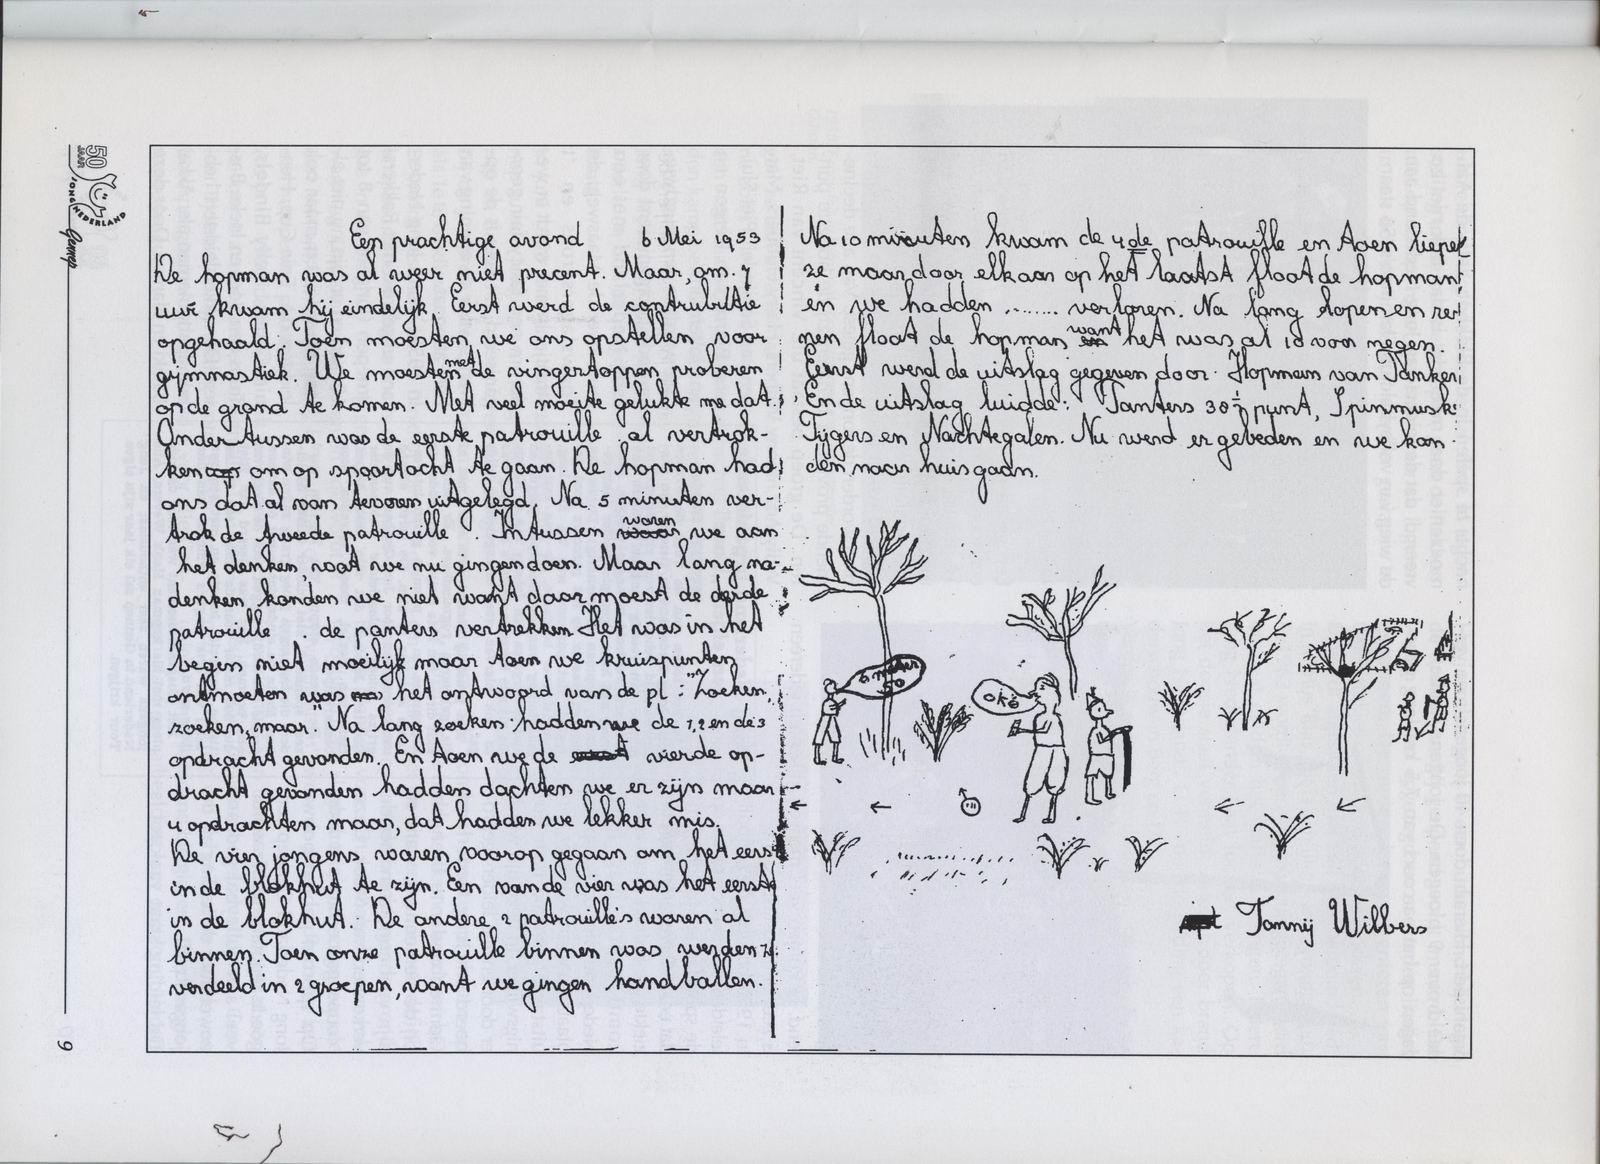 50
JAAR
JONG NEDERLAND
Gennep
9
Een prachtige avond 6 Mei 1953
De hopman was al weer niet precent. Maar, om. 7
uur kwam hij eindelijk. Eerst werd de contrubutie
opgehaald. Toen moesten we ons opstellen voor
gymnastiek. We moesten met de vingertoppen proberen
op de grond te komen. Met veel moeite gelukte me dat.
Onder tussen was de eerste patrouille al vertrok-
ken om op spoortocht te gaan. De hopman had
ons dat al van tevoren uitgelegd. Na 5 minuten ver-
trok de tweede patrouille. Intussen waren we aan
het denken, wat we nu gingen doen. Maar lang na-
denken konden we niet want daar moest de derde
patrouille . de panters vertrekken Het was in het
begin niet moeilijk maar toen we kruispunten
ontmoeten was het antwoord van de pl: "Zoeken,
zoeken, maar." Na lang zoeken hadden we de 1,2 en de 3
opdracht gevonden. En toen we de vierde op-
dracht gevonden hadden dachten we er zijn maar
4 opdrachten maar, dat hadden we lekker mis.
De vier jongens waren voorop gegaan om het eerst
in de blokhut te zijn. Een van de vier was het eerst
in de blokhut. De andere 2 patrouille's waren al
binnen. Toen onze patrouille binnen was werden ze
verdeeld in 2 groepen, want we gingen handballen.
Na 10 minuten kwam de 4de patrouille en toen liepen
ze maar door elkaar op het laatst floot de hopman
en we hadden ........ verloren. Na lang lopen en ren
nen floot de hopman want het was al 10 voor negen.
Eerst werd de uitslag gegeven door Hopman van Tanken
En de uitslag luidde: Panters 38 ½ punt, Spinmusk
Tijgers en Nachtegalen. Nu werd er gebeden en we kon
den naar huis gaan.
6 meter
50
oké
Tonnij Wilbers